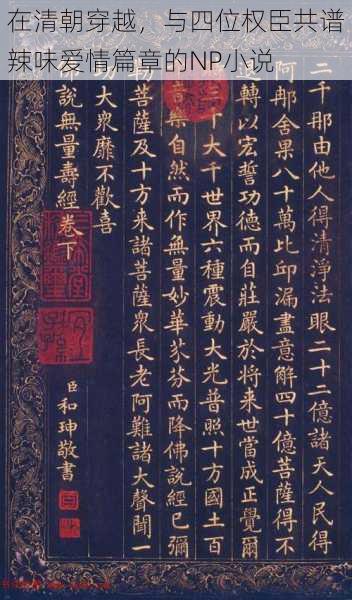 在清朝穿越，与四位权臣共谱
辣味爱情篇章的NP小说
二千那由他人得清淨法眼二十二億諸天人民得
阿那含果八十萬比邱漏盡意解四十億菩薩得不
退轉以宏誓功德而自莊嚴於將来世當成正覺爾
三千大千世界六種震動大光普照十方國土百
音樂自然而作無量妙華芬芬而降佛說經已彌
勒菩薩及十方来諸菩薩衆長老阿難諸大聲聞一
切大衆靡不歡喜
佛說無量壽經卷下
臣和珅敬書